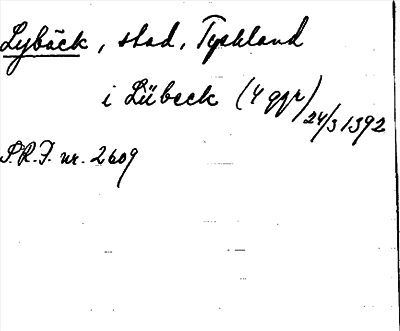 Lybäck, stad, Tyskland
i Lübeck (4 ggr) 24/3 1392
S.R.F. nr. 2609